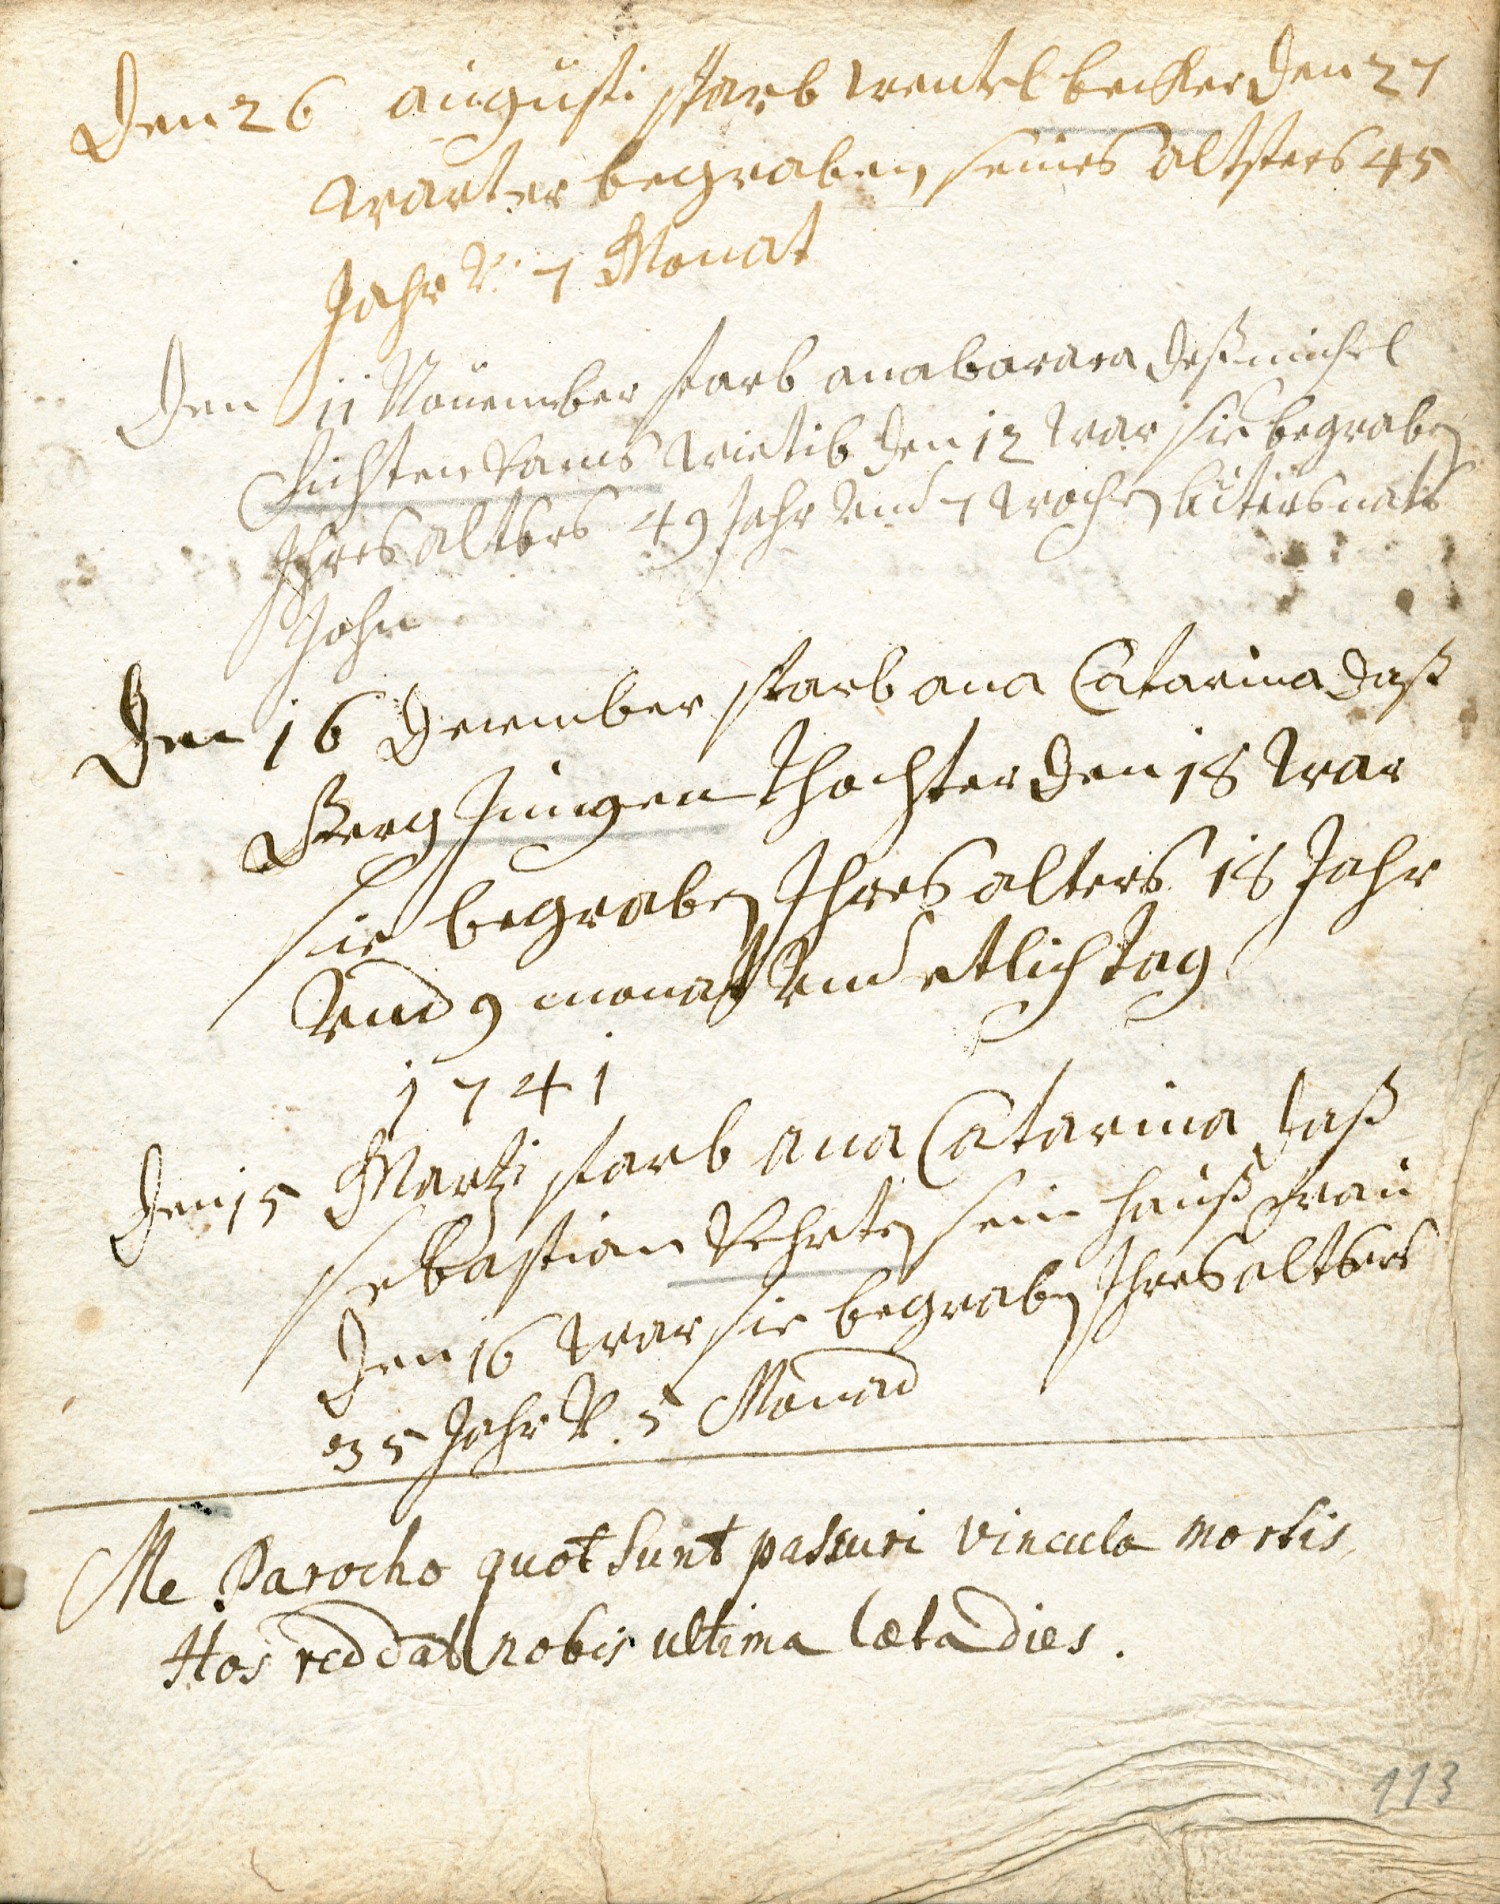 Den 26 augusti starb wentel becker den 27
wart er begraben seines altsters 45
Jahr V. 7 Monat
Den 11 Nouember starb anabarara deß michel
Lichten Vams den 12 war sie begraben
Ihres altsers 49 Jahr Vnd 7 wochen
Jahr
Den 16 december starb ana Catarina daß
Georg Jungen thochter den 18 war
sie begraben Ihres alters 18 Jahr
Vnd 9 monat Vnd etlich tag
1741
Den 15 Martzi starb ana Catarina daß
sebastian sein hauß frau
den 16 war sie begraben Ihres altsers
35 Jahr V. 5 Monad
Me Parocho quot sunt passuri vincula mortis
Hos reddat nobis ultima læta dies.
113